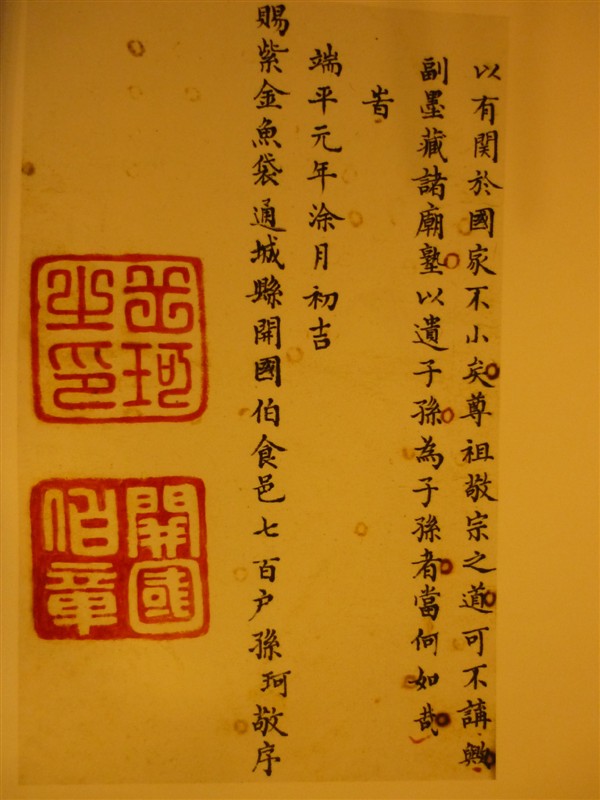 以有関於國家不小矣尊祖敬宗之道可不講歟
副墨藏諸廟塾以遺子孫為子孫者當何如哉
旹
端平元年涂月初吉
賜紫金魚袋通城縣開國伯食邑七百户孫珂敬序
岳珂
之印
開國
伯章